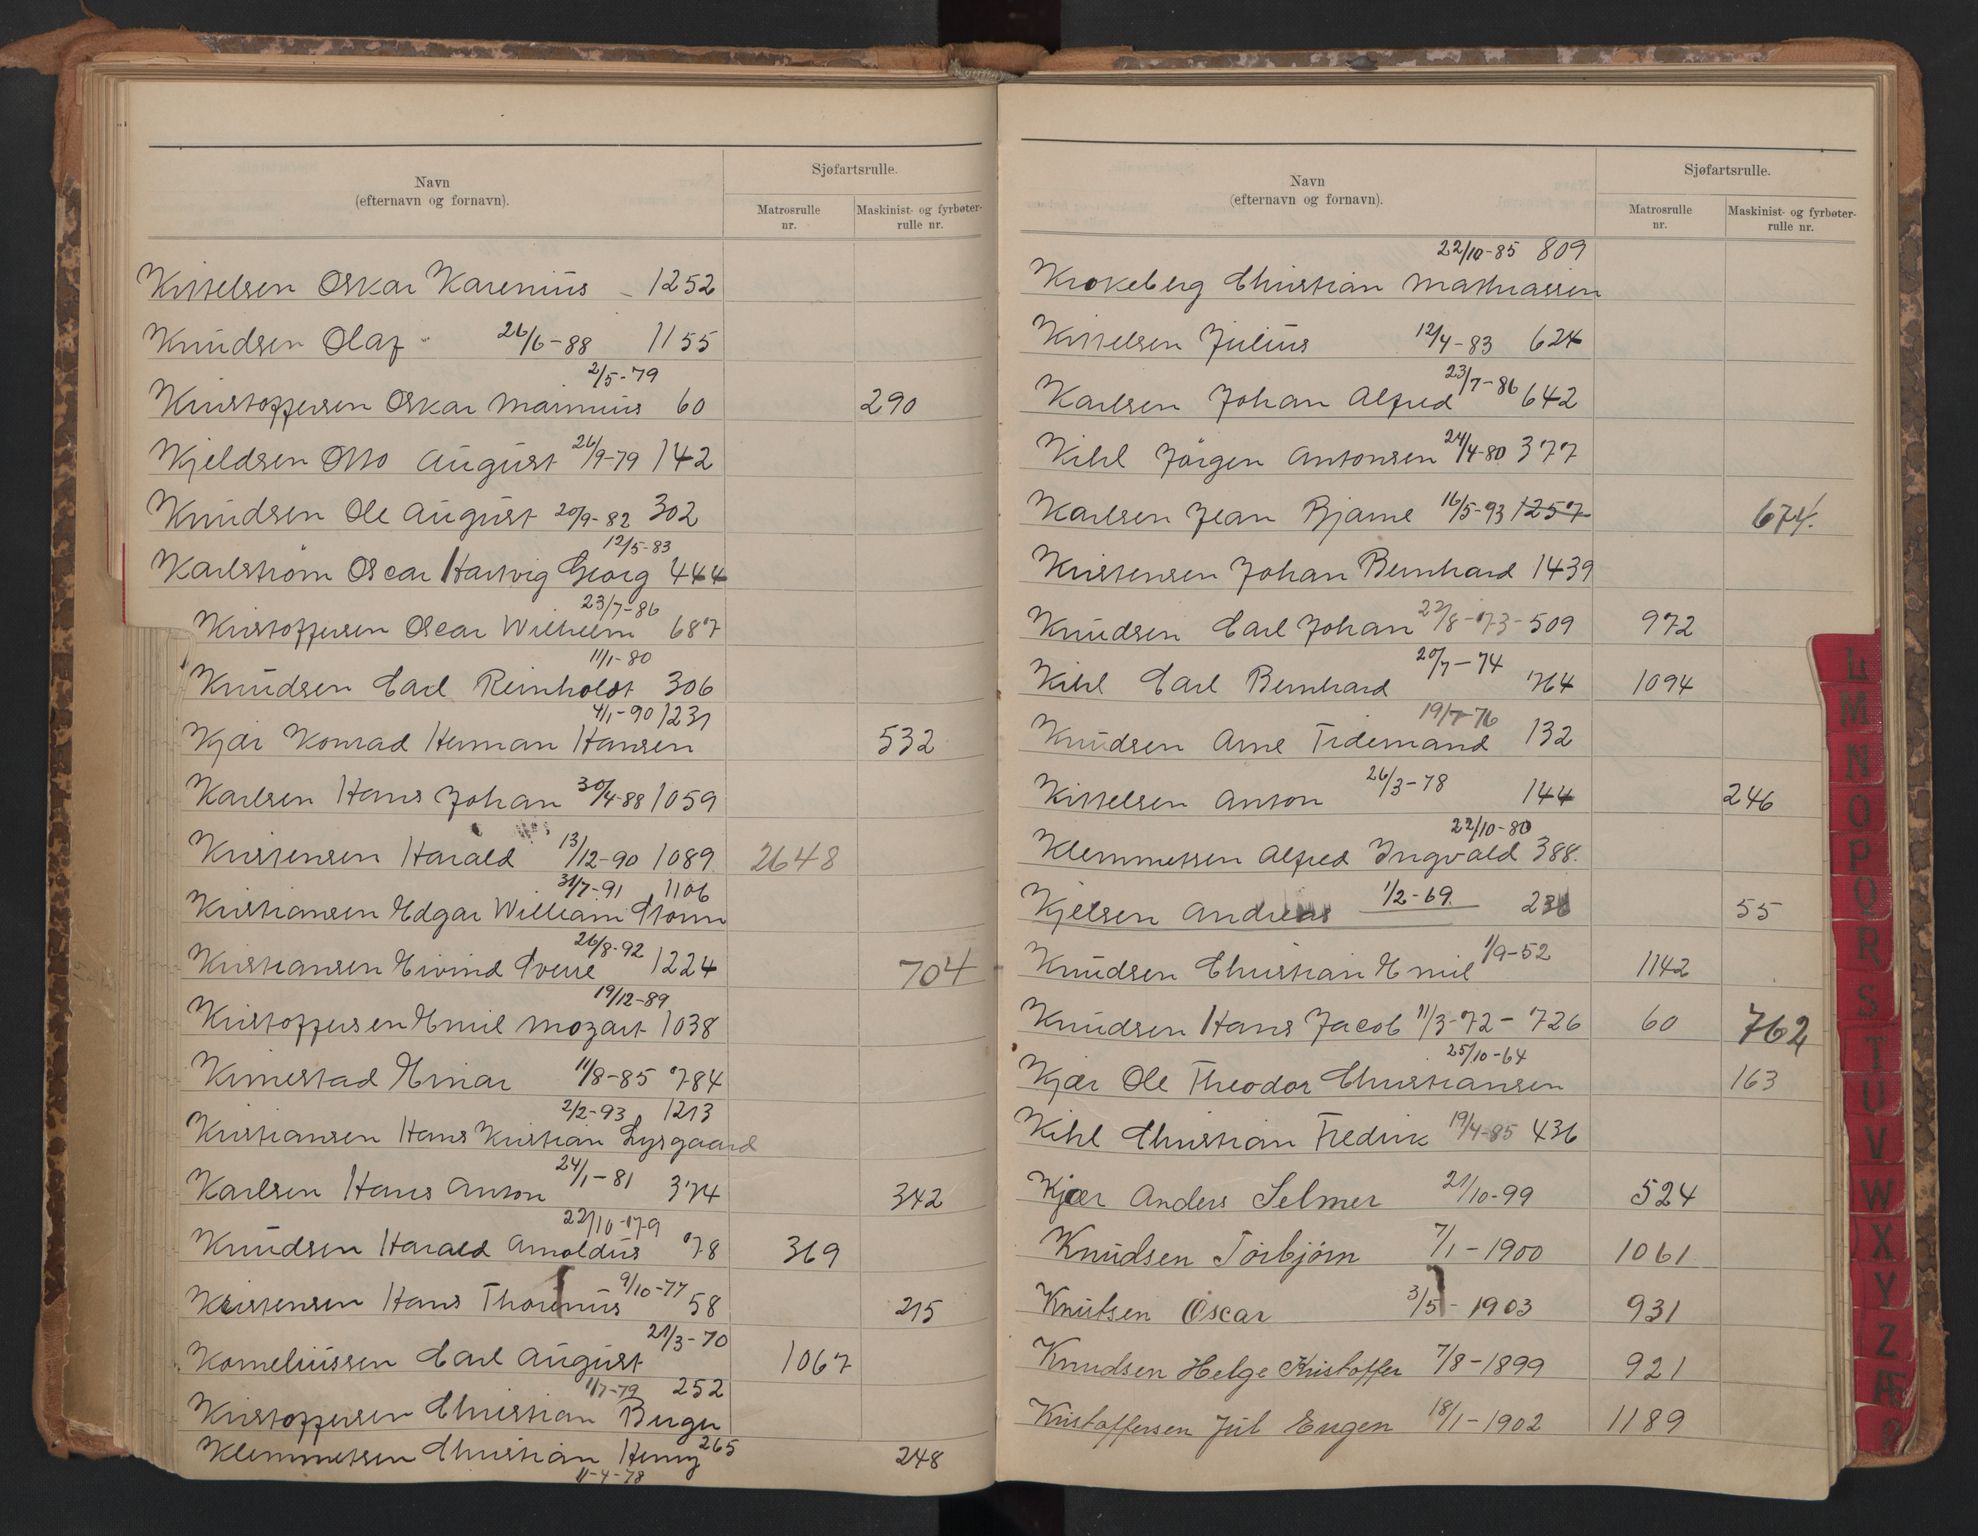 Navn
(efternavn og fornavn).
Sjøfartsrulle.
Matrosrulle nr.
Maskinist- og fyrbøter-rulle nr.
Kittelsen Oskar Karenius - 1252
Knudsen Olaf 26/6-88 1155
2/5-79
Kristoffersen Oskar Marinius 60 290
Kjeldsen Otto August 26/9-79 142
Knudsen Ole August 20/9-82 302
12/5-83
Karlstrøm Oscar Hartvig Georg 444
23/7-86
Kristoffersen Oscar Wilhelm 687
11/1-80
Knudsen Carl Reinholdt 306
4/1-90 1231
Kjær Konrad Herman Hansen 532
Karlsen Hans Johan 30/4-88 1059
Kristensen Harald 13/12-90 1089 2648
31/7-91 1106
Kristiansen Edgar William Storm
26/8-92
Kristiansen Eivind Sverre 1224 704
19/12-89
Kristoffersen Emil Mozart 1038
Kimestad Einar 11/8-85 784
2/2-93 1213
Kristiansen Hans Kristian Lysgaard
24/1-81
Karlsen Hans Anton 374 342
22/10-79
Knudsen Harald Arnoldus 78 369
9/10-77
Kristensen Hans Thorenius 58 215
21/3-70
Korneliussen Carl August 1067
1/7-79 252
Kristoffersen Christian Berger
Klemmetsen Christian Henry 265 248
11-4-78
Navn
(efternavn og fornavn).
Sjøfartsrulle.
Matrosrulle nr.
Maskinist- og fyrbøter-rulle nr.
22/10-85 809
Krokeberg Christian Mathiassen
Kittelsen Julius 12/4-83 624
23/7-86
Karlsen Johan Alfred 642
Kihl Jörgen Antonsen 24/4-80 377
Karlsen Jean Bjarne 16/5-93 1257 674.
Kristensen Johan Bernhard 1439
Knudsen Carl Johan 22/8-73-509 972
20/7-74
Kihl Carl Bernhard 764 1094
19/7-76
Knudsen Arne Tidemand 132
26/3-78
Kittelsen Anton 144 246
22/10-80
Klemmetsen Alfred Ingvald 388.
Kjelsen Andreas 1/2-69 55
Knudsen Christian Emil 1/9-52 1142
Knudsen Hans Jacob 11/3-72-726 60 762
25/10-64
Kjær Ole Theodor Christiansen 163
Kihl Christian Fredrik 19/4-85 436
Kjær Anders Selmer 21/10-99 524
Knudsen Torbjörn 7/1-1900 1061
Knutsen Oscar 3/5-1903 931
Knudsen Helge Kristoffer 7/8-1899 921
Kristoffersen Jul Eugen 18/1-1902 1189
L
M
N
O
P
Q
R
S
T
U
V
W
X
Y
Z
Æ
Ø